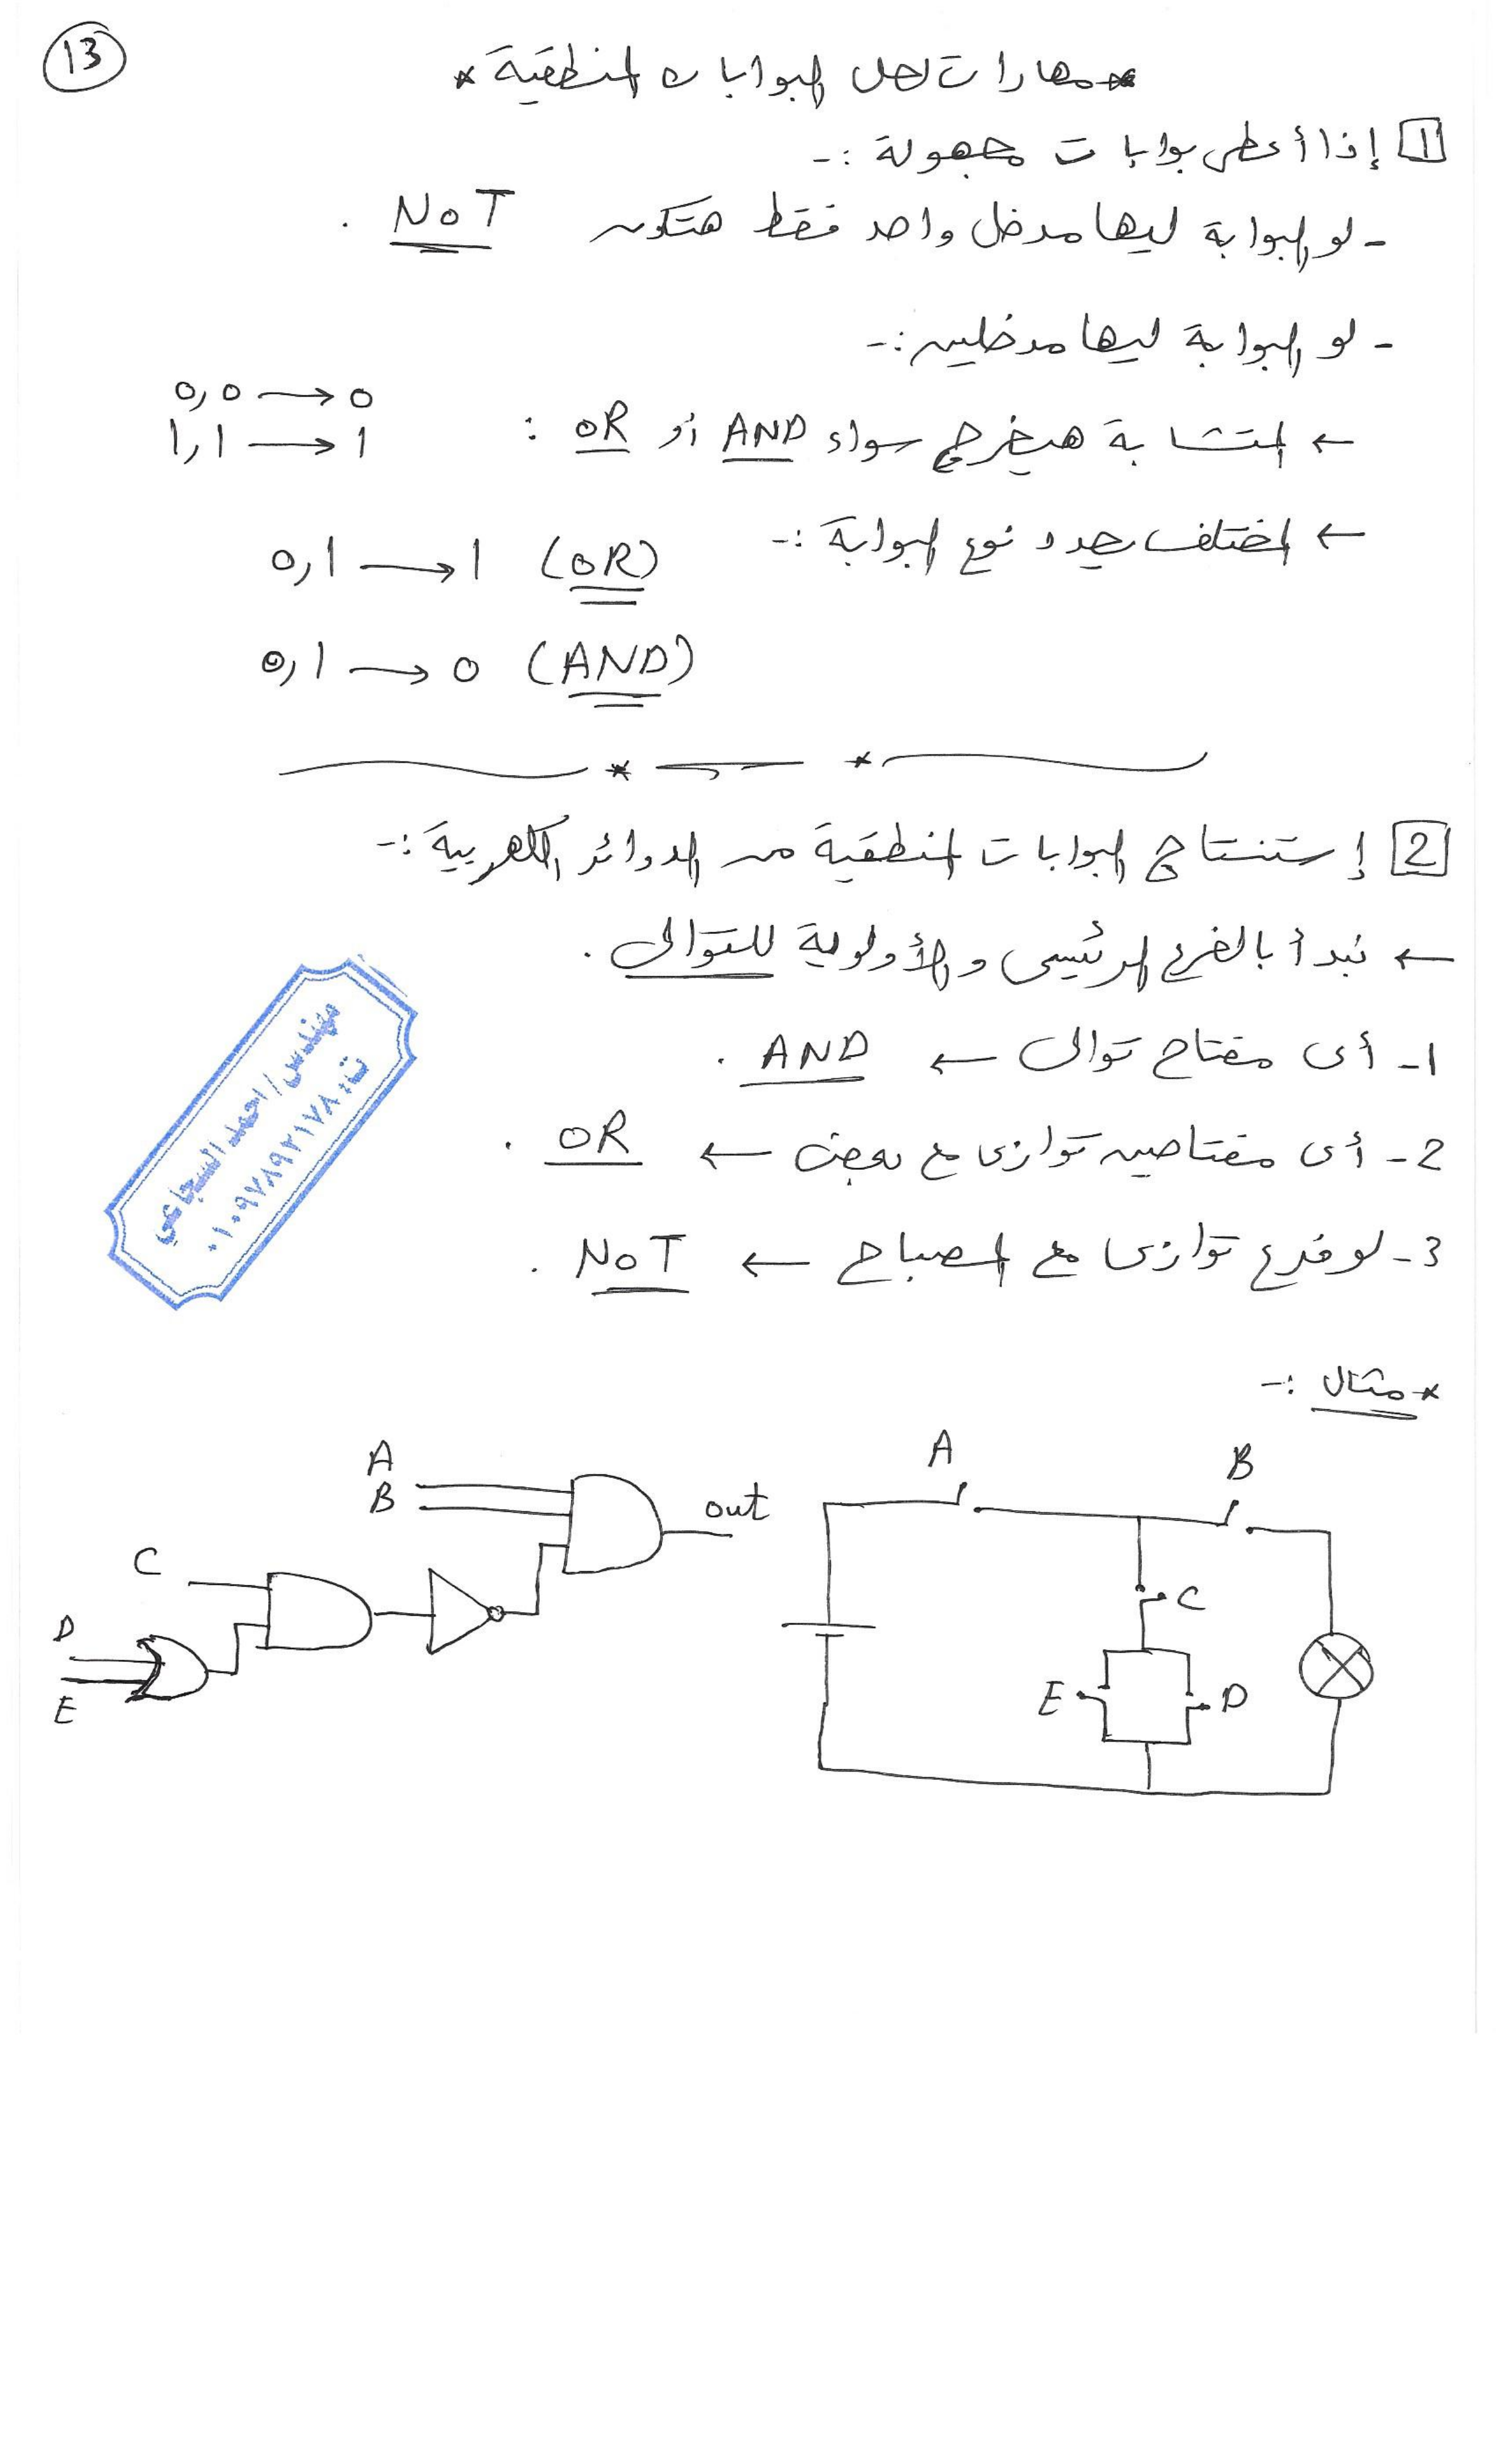 13
* مهارات لحل البوابات المنطقية *
1 إذا أعطى بوابات مجهولة :-
- لو البوابة ليها مدخل واحد فقط هتكون NOT .
- لو البوابة ليها مدخلين :-
← المتشابة هيخرج سواء AND أو OR :
0,0 → 0
1,1 → 1
← المختلف يحدد نوع البوابة :-
0,1 → 1 (OR)
0,1 → 0 (AND)
2 إستنتاج البوابات المنطقية من الدوائر الكهربية :-
← نبدأ بالفرع الرئيسى والأولوية للتوالى .
1- أى مفتاح توالى ← AND .
2- أى مفتاحين توازى مع بعض ← OR .
3- لو فرع توازى مع المصباح ← NOT .
مهندس/احمد السجاعي
ت: ٠١٠٩٧٨٩٢١٧٨
* مثال :-
A
B
out
C
D
E
A
B
C
E
D